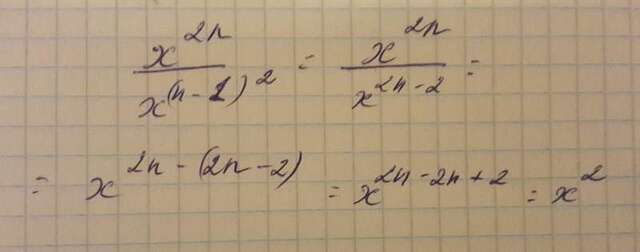 x^{2n} / x^{(n-1)2} = x^{2n} / x^{2n-2} =
= x^{2n-(2n-2)} = x^{2n-2n+2} = x^2